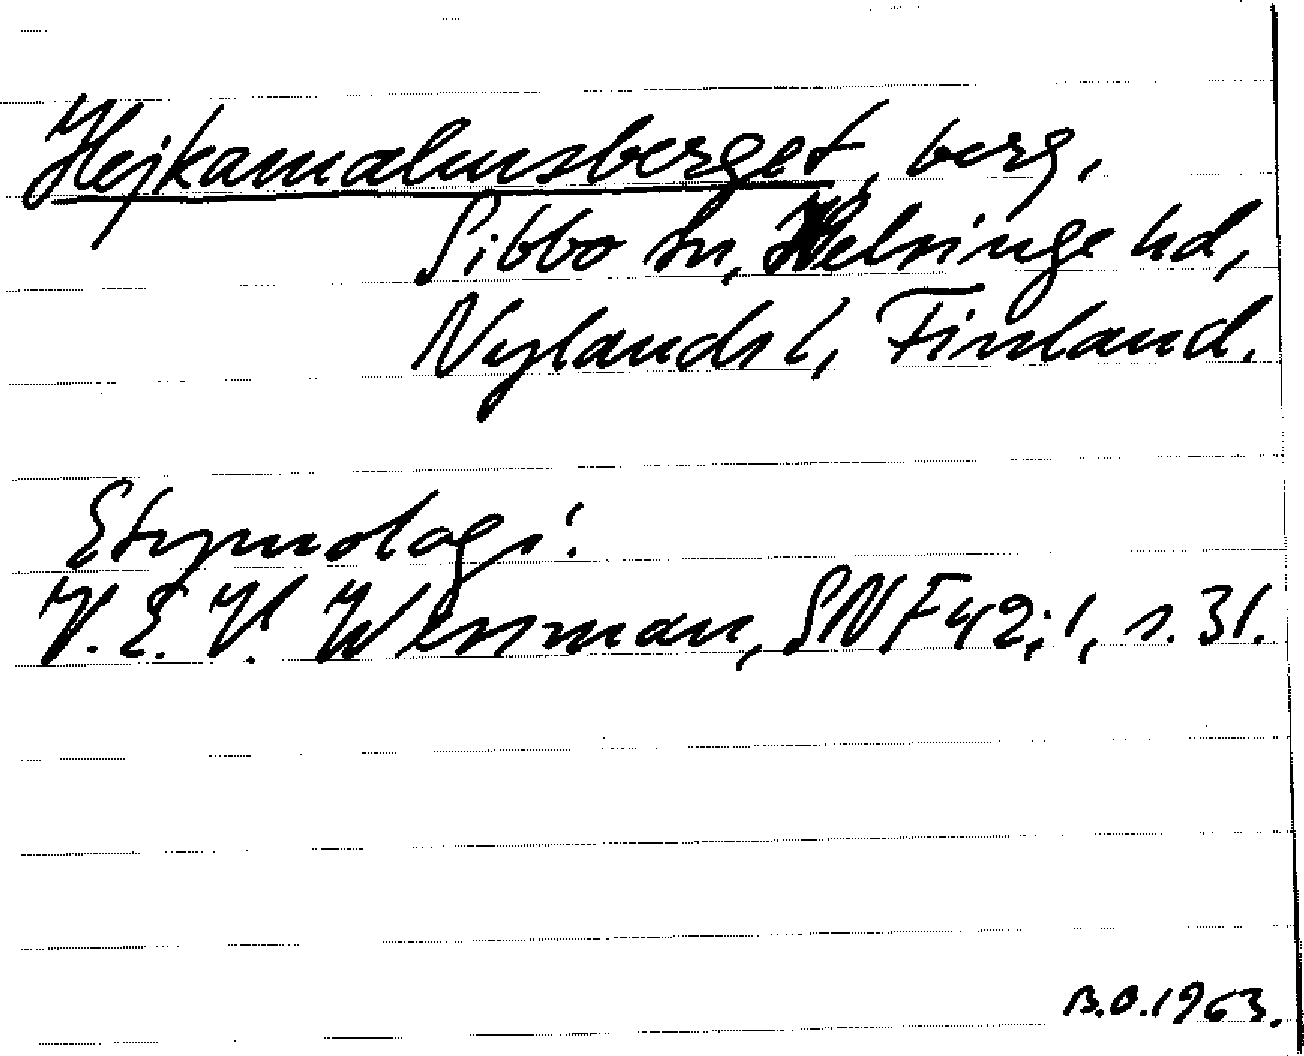 Hejkamalmsberget, berg,
Sibbo sn, Helsinge hd,
Nylands l, Finland.
Etymologi:
V. E. V. Wessman, SNF 42; 1, s. 31.
B.O. 1963.